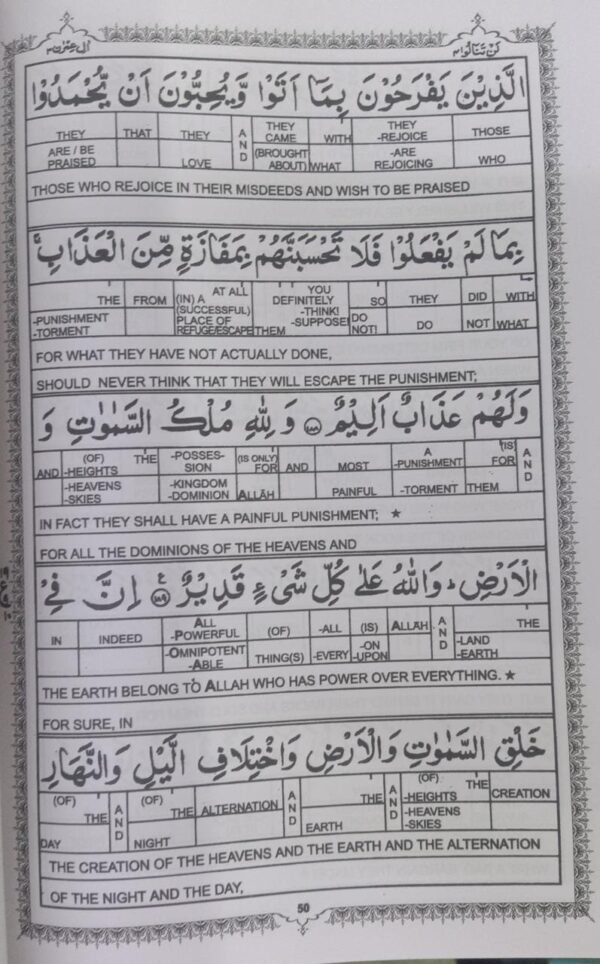 لن تنالوا ٤
اٰل عمرٰن ٣
الَّذِيْنَ يَفْرَحُوْنَ بِمَآ اَتَوْا وَّيُحِبُّوْنَ اَنْ يُّحْمَدُوْا
THEY THAT THEY AND THEY CAME WITH THEY -REJOICE THOSE
ARE / BE PRAISED LOVE (BROUGHT ABOUT) WHAT -ARE REJOICING WHO
THOSE WHO REJOICE IN THEIR MISDEEDS AND WISH TO BE PRAISED
بِمَا لَمْ يَفْعَلُوْا فَلَا تَحْسَبَنَّهُمْ بِمَفَازَةٍ مِّنَ الْعَذَابِ ۚ
THE FROM AT ALL (IN) A (SUCCESSFUL) YOU DEFINITELY -THINK! SO THEY DID WITH
-PUNISHMENT -TORMENT PLACE OF REFUGE/ESCAPE THEM -SUPPOSE! DO NOT! DO NOT WHAT
FOR WHAT THEY HAVE NOT ACTUALLY DONE,
SHOULD NEVER THINK THAT THEY WILL ESCAPE THE PUNISHMENT;
وَلَهُمْ عَذَابٌ اَلِيْمٌ ۝١٨٨ وَلِلّٰهِ مُلْكُ السَّمٰوٰتِ وَ
AND (OF) THE -HEIGHTS -POSSESSION (IS ONLY) FOR AND MOST A -PUNISHMENT (IS) FOR AND
-HEAVENS -SKIES -KINGDOM -DOMINION ALLĀH PAINFUL -TORMENT THEM
IN FACT THEY SHALL HAVE A PAINFUL PUNISHMENT; ★
FOR ALL THE DOMINIONS OF THE HEAVENS AND
الْاَرْضِ ؕ وَاللّٰهُ عَلٰى كُلِّ شَيْءٍ قَدِيْرٌ ۝١٨٩ اِنَّ فِيْ
IN INDEED ALL -POWERFUL (OF) -ALL (IS) ALLĀH AND THE
-OMNIPOTENT -ABLE THING(S) -EVERY -ON -UPON -LAND -EARTH
THE EARTH BELONG TO ALLAH WHO HAS POWER OVER EVERYTHING. ★
FOR SURE, IN
خَلْقِ السَّمٰوٰتِ وَالْاَرْضِ وَاخْتِلَافِ الَّيْلِ وَالنَّهَارِ
(OF) THE AND (OF) THE ALTERNATION AND THE AND (OF) THE -HEIGHTS CREATION
DAY NIGHT EARTH -HEAVENS -SKIES
THE CREATION OF THE HEAVENS AND THE EARTH AND THE ALTERNATION
OF THE NIGHT AND THE DAY,
50